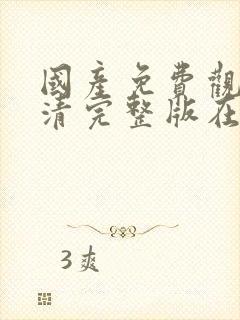 國產免費觀
清完整版在
3爽